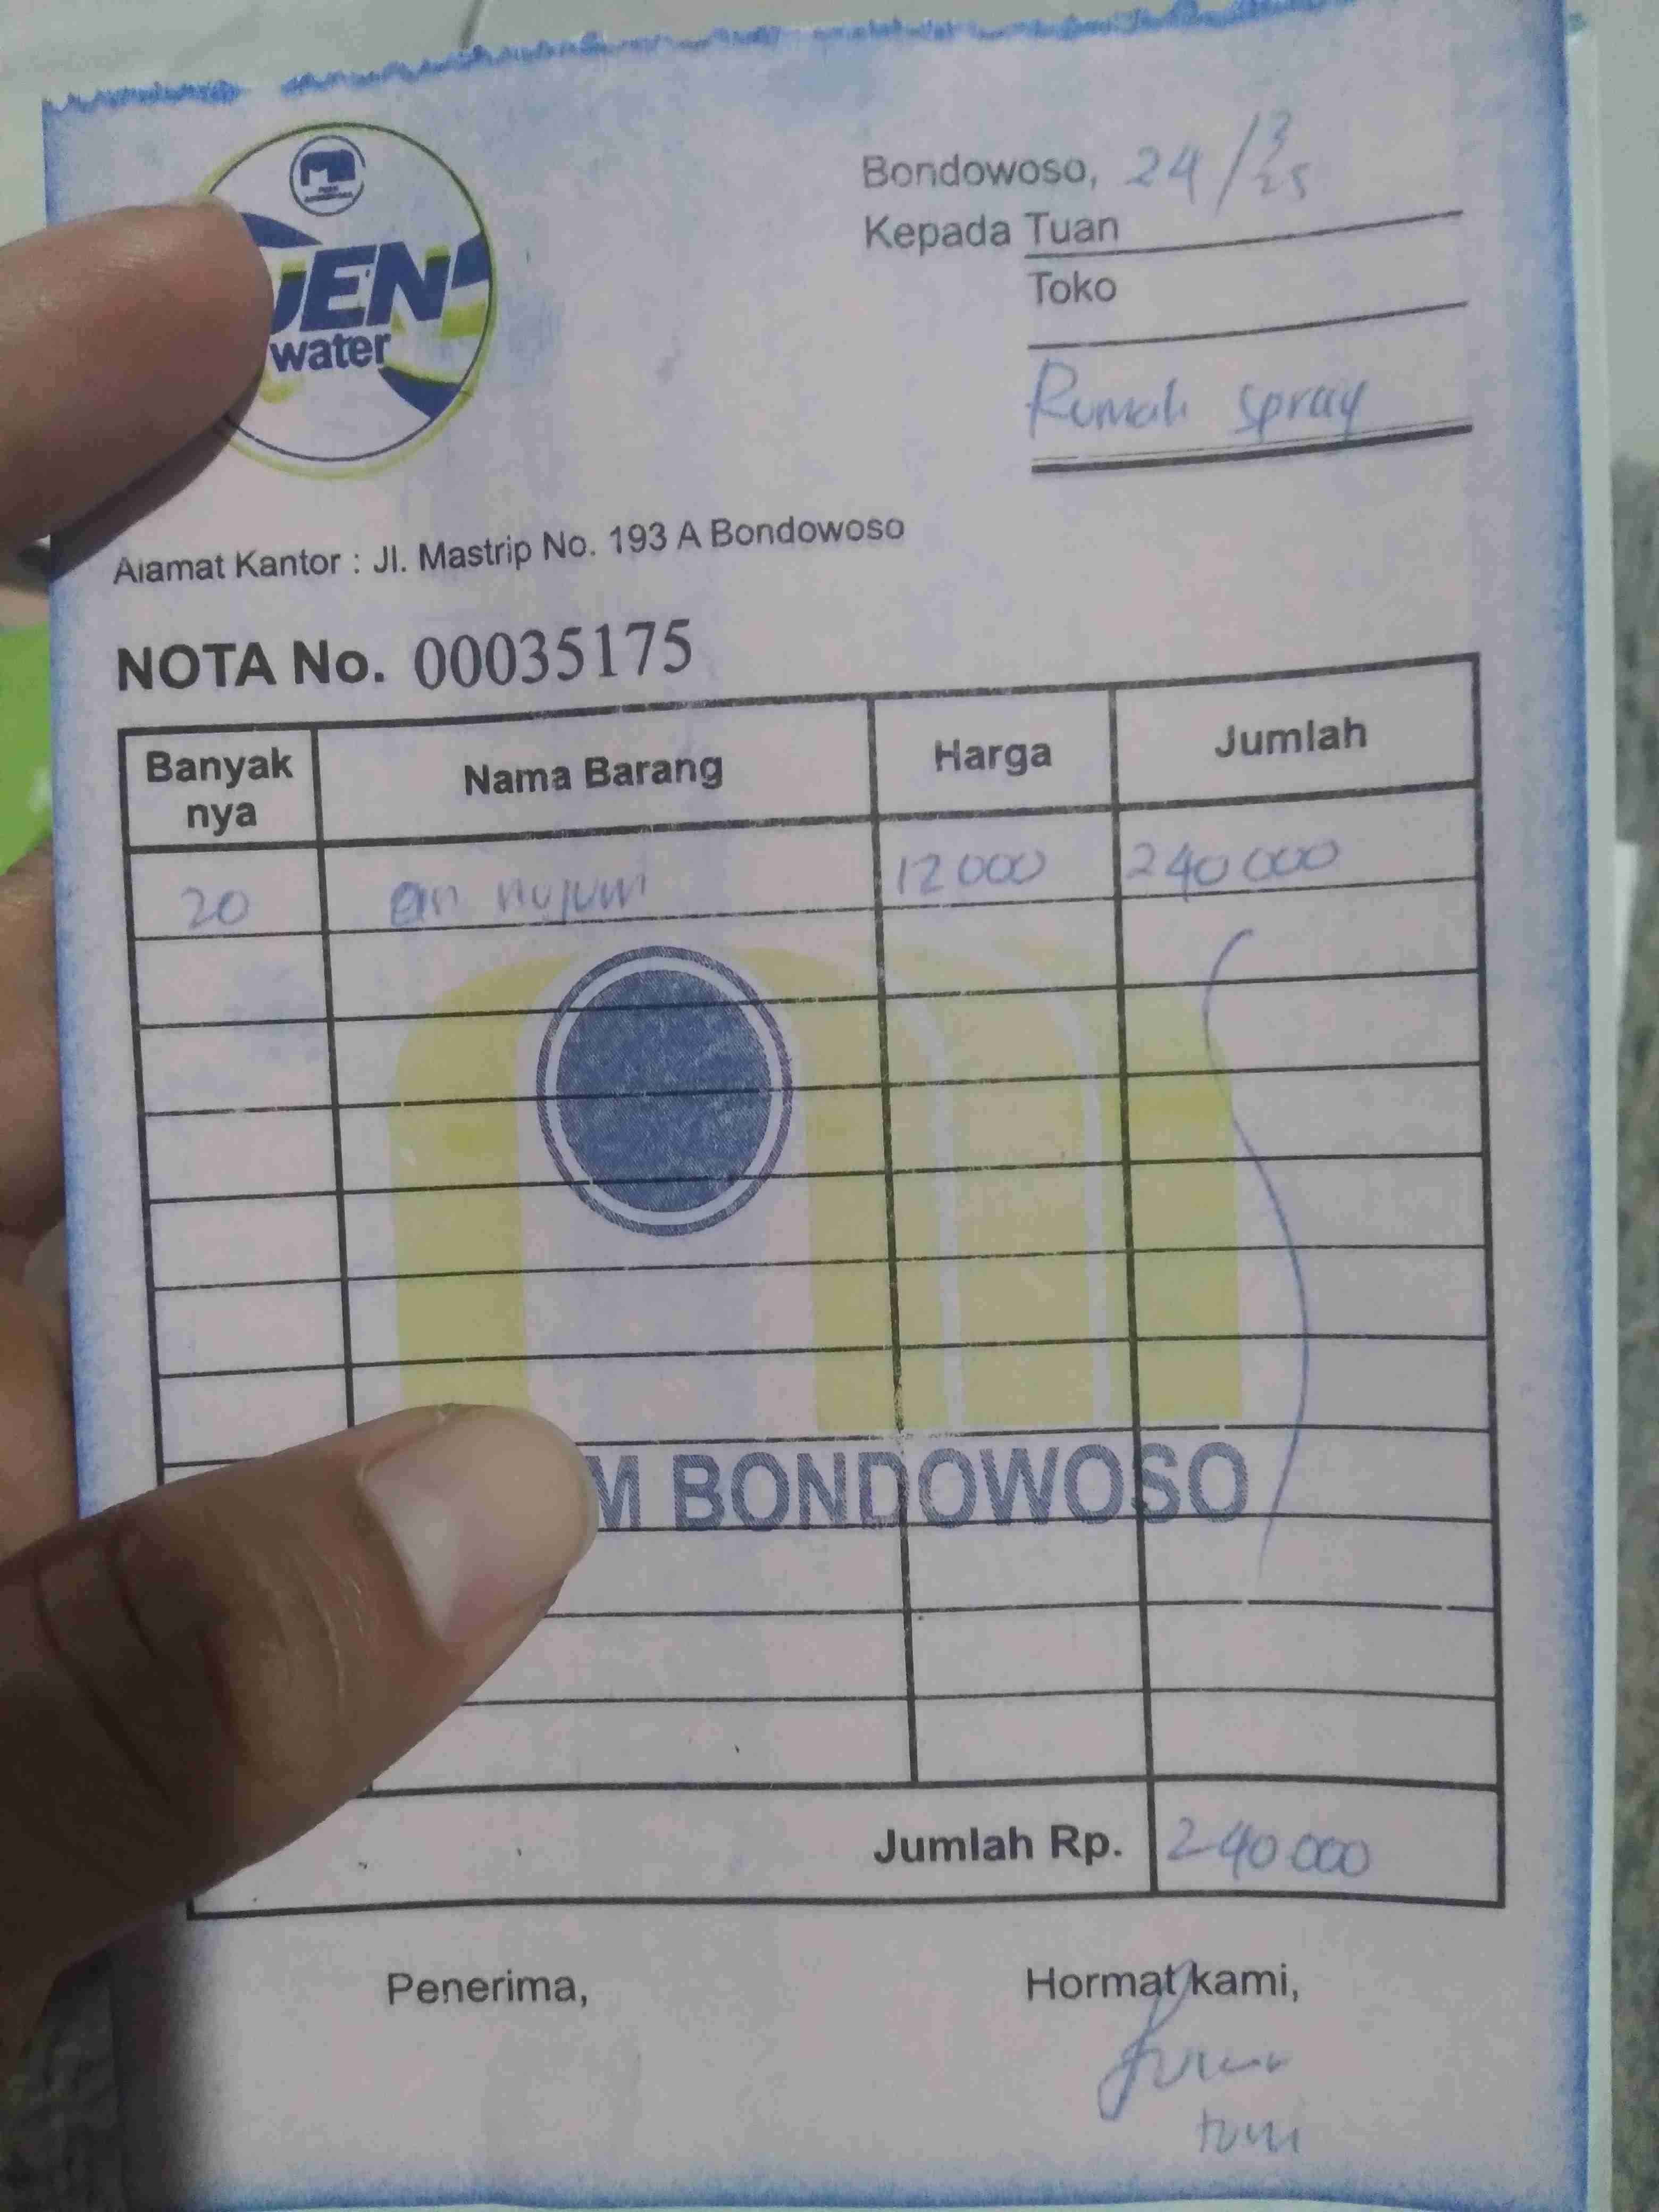 JEN
water
Bondowoso, 24/3/25
Kepada Tuan
Toko
Rumah spray
Alamat Kantor : Jl. Mastrip No. 193 A Bondowoso
NOTA No. 00035175
Banyak nya Nama Barang Harga Jumlah
20 12000 240 000
M BONDOWOSO
Jumlah Rp. 240 000
Penerima, Hormat kami,